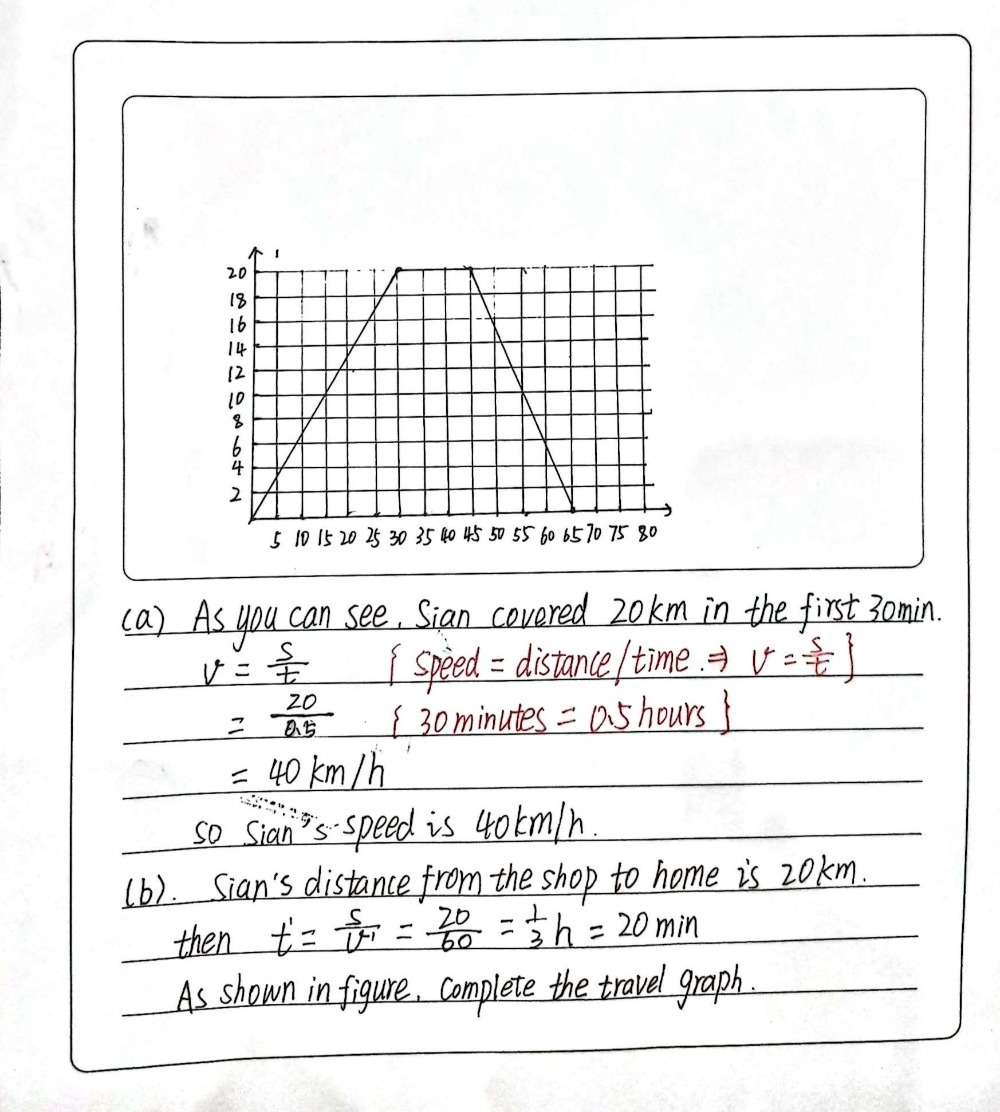 20
18
16
14
12
10
8
6
4
2
5 10 15 20 25 30 35 40 45 50 55 60 65 70 75 80
(a) As you can see, Sian covered 20km in the first 30min.
v = s/t { speed = distance/time ⇒ v = s/t }
= 20/0.5 { 30 minutes = 0.5 hours }
= 40 km/h
so Sian's speed is 40km/h.
(b). Sian's distance from the shop to home is 20km.
then t' = s/v' = 20/60 = 1/3 h = 20 min
As shown in figure, complete the travel graph.